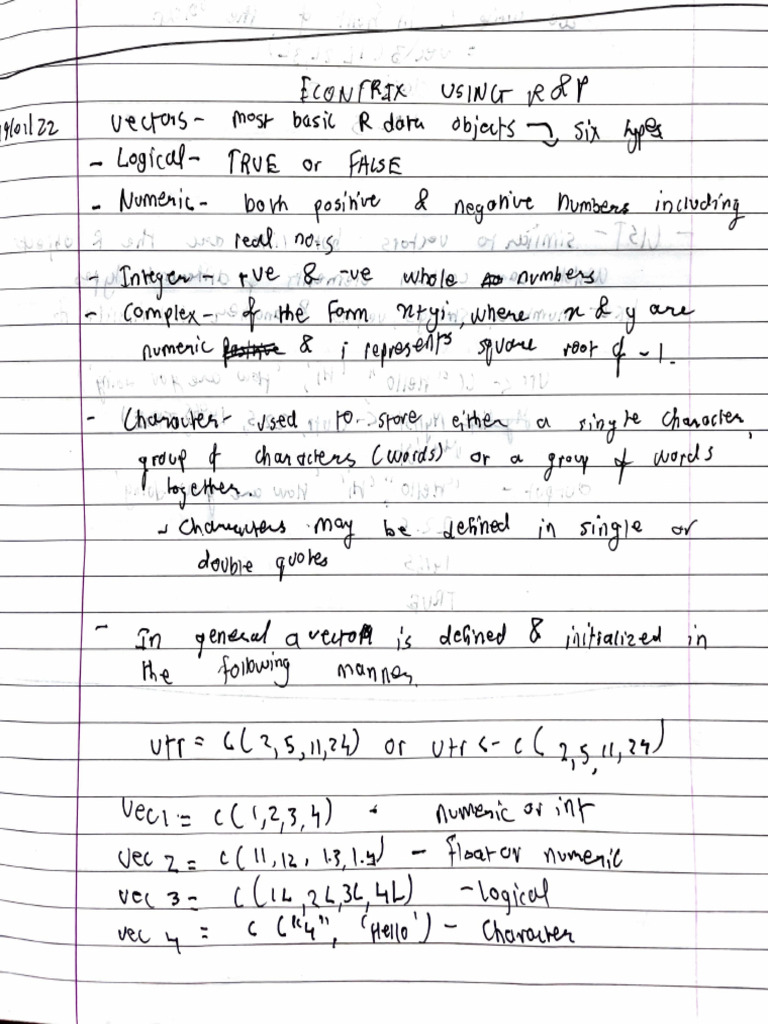 ECONTRIX USING R & P
9/01/22 vectors - most basic R data objects → six types
- Logical - TRUE or FALSE
- Numeric - both positive & negative numbers including
real nos
Integer - +ve & -ve whole numbers
- Complex - of the form x+yi, where x & y are
numeric positive & i represents square root of -1.
- Character - used to store either a single character,
group of characters (words) or a group of words
together.
↳ Characters may be defined in single or
double quotes
- In general a vector is defined & initialized in
the following manner
vtr = c(2,5,11,24) or vtr <- c(2,5,11,24)
vec1 = c(1,2,3,4) - numeric or int
vec 2 = c(11,12, 1.3,1.4) - float or numeric
vec 3 = c(1L,2L,3L,4L) - Logical
vec 4 = c("4", 'Hello') - Character